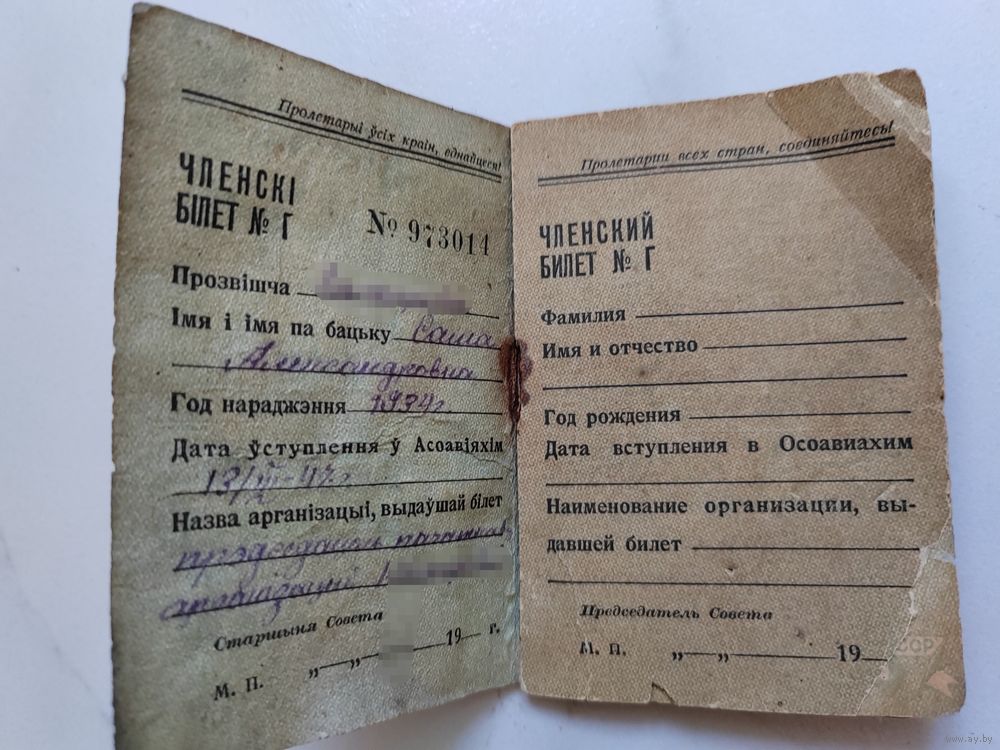 Пролетарыі ўсіх краін, еднайцеся!
ЧЛЕНСКІ
БІЛЕТ № Г
№ 973014
Прозвішча
Імя і імя па бацьку Саша
Александровна
Год нараджэння 1934 г.
Дата ўступлення ў Асоавіяхім
13/III-47 г.
Назва арганізацыі, выдаўшай білет
Старшыня Совета
„ — „ 19 — г.
М. П.
Пролетарии всех стран, соединяйтесь!
ЧЛЕНСКИЙ
БИЛЕТ № Г
Фамилия
Имя и отчество
Год рождения
Дата вступления в Осоавиахим
Наименование организации, вы-
давшей билет
Председатель Совета
М. П. „ — „ 19
www.ay.by